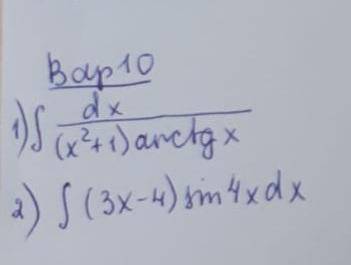 Вар 10
1) ∫ dx / (x²+1) arctg x
2) ∫ (3x-4) sin 4x dx